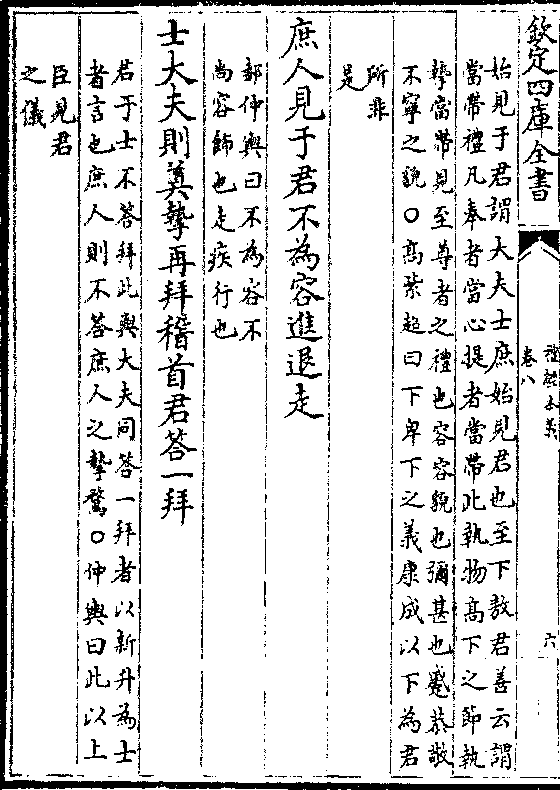 欽定四庫全書
卷八
六
始見于君謂大夫士庶始見君也至下敖君善云謂
當帶禮凡奉者當心提者當帶此執物髙下之節執
摯當帶見至尊者之禮也容容貌也彌甚也蹙恭敬
不寧之貌○髙紫超曰下卑下之義康成以下為君
所非
是
庶人見于君不為容進退走
郝仲輿曰不為容不
尚容飾也走疾行也
士大夫則奠摯再拜稽首君答一拜
君于士不答拜此與大夫同答一拜者以新升為士
者言也庶人則不答庶人之摯鶩○仲輿曰此以上
臣見君
之儀